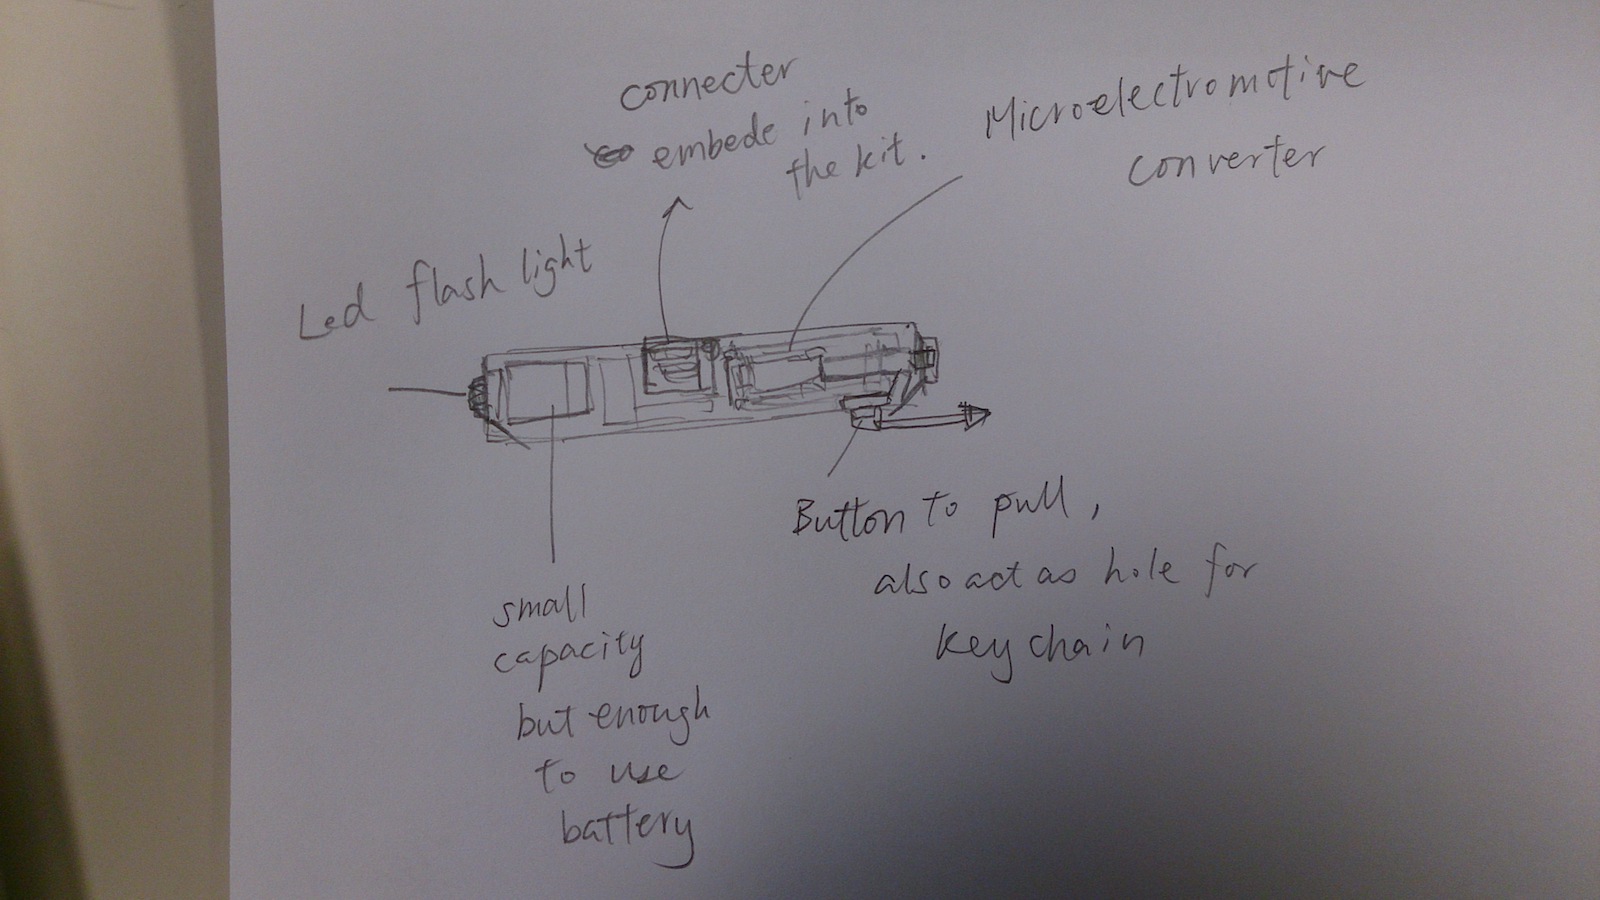 connecter
embede into
the kit.
Microelectromotive
converter
Led flash light
Button to pull,
also act as hole for
key chain
small
capacity
but enough
to use
battery